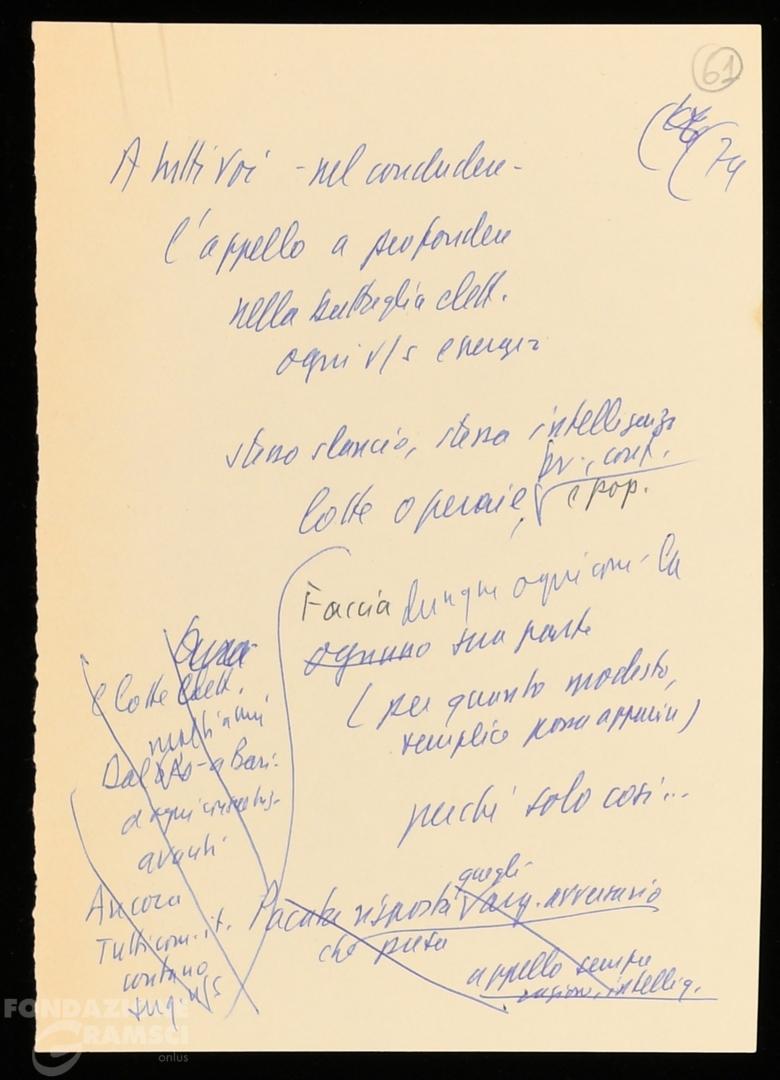 61
74
A tutti voi - nel concludere -
l'appello a profondere
nella battaglia elett.
ogni v/s energia
stesso slancio, stessa intelligenza
lotte operaie, br., cont.
e pop.
Faccia dunque ogni com - la
ognuno sua parte
(per quanto modesto,
semplice possa apparire)
perché solo così...
e lotte elett.
molti anni
a Bari:
avanti
Ancora
Tutti com. it.
contano
su v/s
Pacata risposta quegli avv. avversario
che
appello sempre
ragione, intellig.
FONDAZIONE
GRAMSCI
onlus